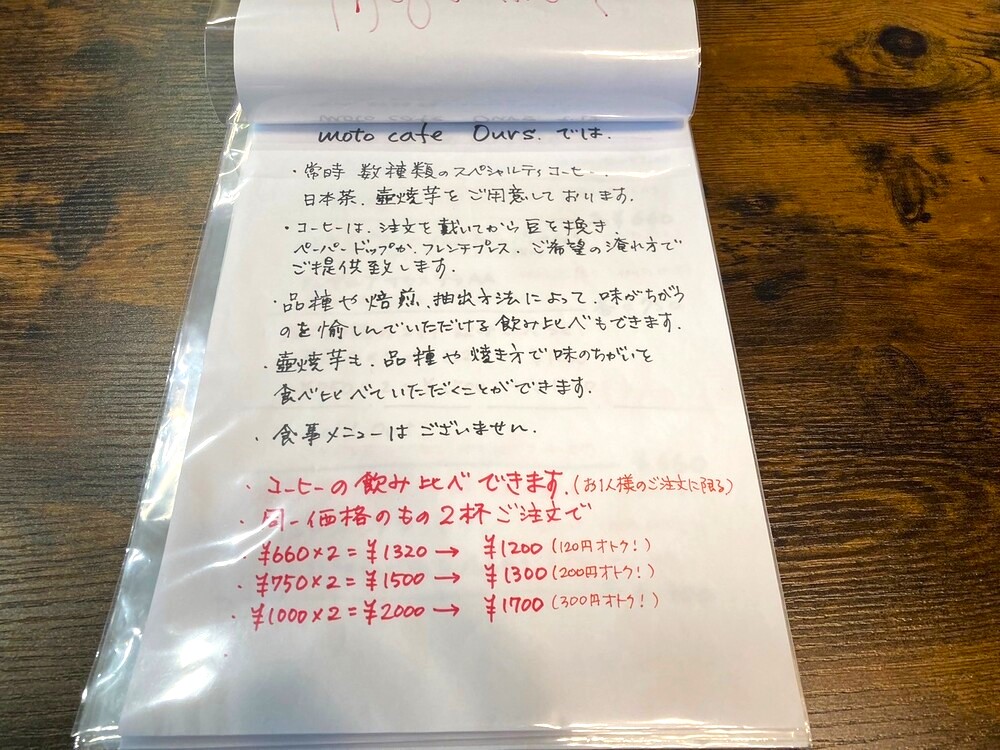 moto cafe Ours. では.
・常時 数種類のスペシャルティコーヒー、
日本茶、壷焼芋をご用意しております.
・コーヒーは、注文を戴いてから豆を挽き、
ペーパードリップか、フレンチプレス、ご希望の淹れ方で
ご提供致します.
・品種や焙煎、抽出方法によって、味がちがう
のを愉しんでいただける飲み比べもできます.
・壷焼芋も、品種や焼き方で味のちがいを
食べ比べていただくことができます.
・食事メニューはございません.
・コーヒーの飲み比べできます.(お1人様のご注文に限る)
・同一価格のもの2杯ご注文で
・¥660×2=¥1320→ ¥1200(120円オトク!)
・¥750×2=¥1500→ ¥1300(200円オトク!)
・¥1000×2=¥2000→ ¥1700(300円オトク!)